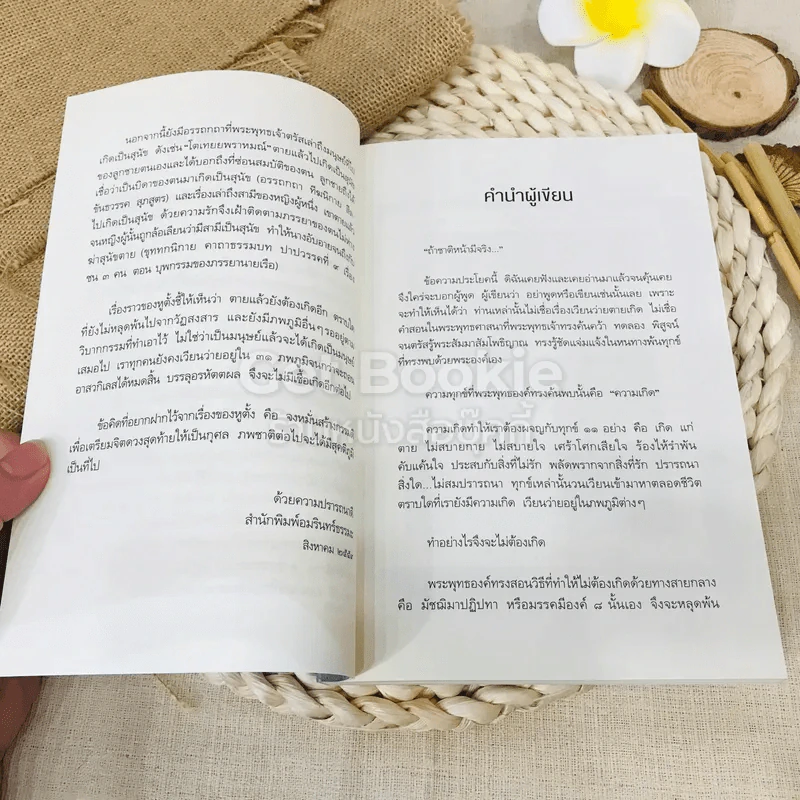 นอกจากนี้ยังมีอรรถกถาที่พระพุทธเจ้าตรัสเล่าถึงมนุษย์ที่
เกิดเป็นสุนัข ดังเช่น "โตเทยยพราหมณ์" ตายแล้วไปเกิดเป็นสุนัข
ของลูกชายตนเองและได้บอกถึงที่ซ่อนสมบัติของตน ลูกชายถึงได้
เชื่อว่าเป็นบิดาของตนมาเกิดเป็นสุนัข (อรรถกถา ทีฆนิกาย
ขันธวรรค สุภสูตร) และเรื่องเล่าถึงสามีของหญิงผู้หนึ่ง เขาตายแล้ว
ไปเกิดเป็นสุนัข ด้วยความรักจึงเฝ้าติดตามภรรยาของตน
จนหญิงผู้นั้นถูกล้อเลียนว่ามีสามีเป็นสุนัข ทำให้นางอับอายจนถึงกับ
ฆ่าสุนัขตาย (ขุททกนิกาย คาถาธรรมบท ปาปวรรคที่ ๙ เรื่อง
ชน ๓ คน ตอน บุพกรรมของภรรยานายเรือ)
เรื่องราวของหูตั้งชี้ให้เห็นว่า ตายแล้วยังต้องเกิดอีก ตราบใด
ที่ยังไม่หลุดพ้นไปจากวัฏสงสาร และยังมีภพภูมิอื่นๆ รออยู่ตาม
วิบากกรรมที่ทำเอาไว้ ไม่ใช่ว่าเป็นมนุษย์แล้วจะได้เกิดเป็นมนุษย์
เสมอไป เราทุกคนยังคงเวียนว่ายอยู่ใน ๓๑ ภพภูมิจนกว่าจะถอน
อาสวกิเลสได้หมดสิ้น บรรลุอรหัตตผล จึงจะไม่มีเชื้อเกิดอีกต่อไป
ข้อคิดที่อยากฝากไว้จากเรื่องของหูตั้ง คือ จงหมั่นสร้าง
เพื่อเตรียมจิตดวงสุดท้ายให้เป็นกุศล ภพชาติต่อไปจะได้มีสุคติภูมิ
เป็นที่ไป
ด้วยความปรารถนาดี
สำนักพิมพ์อมรินทร์ธรรมะ
สิงหาคม ๒๕๕๙
คำนำผู้เขียน
"ถ้าชาติหน้ามีจริง..."
ข้อความประโยคนี้ ดิฉันเคยฟังและเคยอ่านมาแล้วจนคุ้นเคย
จึงใคร่จะบอกผู้พูด ผู้เขียนว่า อย่าพูดหรือเขียนเช่นนั้นเลย เพราะ
จะทำให้เห็นได้ว่า ท่านเหล่านั้นไม่เชื่อเรื่องเวียนว่ายตายเกิด ไม่เชื่อ
คำสอนในพระพุทธศาสนาที่พระพุทธเจ้าทรงค้นคว้า ทดลอง พิสูจน์
จนตรัสรู้พระสัมมาสัมโพธิญาณ ทรงรู้ชัดแจ่มแจ้งในหนทางพ้นทุกข์
ที่ทรงพบด้วยพระองค์เอง
ความทุกข์ที่พระพุทธองค์ทรงค้นพบนั้นคือ "ความเกิด"
ความเกิดทำให้เราต้องผจญกับทุกข์ ๑๑ อย่าง คือ เกิด แก่
ตาย ไม่สบายกาย ไม่สบายใจ เศร้าโศกเสียใจ ร้องไห้รำพัน
คับแค้นใจ ประสบกับสิ่งที่ไม่รัก พลัดพรากจากสิ่งที่รัก ปรารถนา
สิ่งใด...ไม่สมปรารถนา ทุกข์เหล่านั้นวนเวียนเข้ามาหาตลอดชีวิต
ตราบใดที่เรายังมีความเกิด เวียนว่ายอยู่ในภพภูมิต่างๆ
ทำอย่างไรจึงจะไม่ต้องเกิด
พระพุทธองค์ทรงสอนวิธีที่ทำให้ไม่ต้องเกิดด้วยทางสายกลาง
คือ มัชฌิมาปฏิปทา หรือมรรคมีองค์ ๘ นั้นเอง จึงจะหลุดพ้น
Got Bookie
ร้านหนังสือบุ๊คกี้